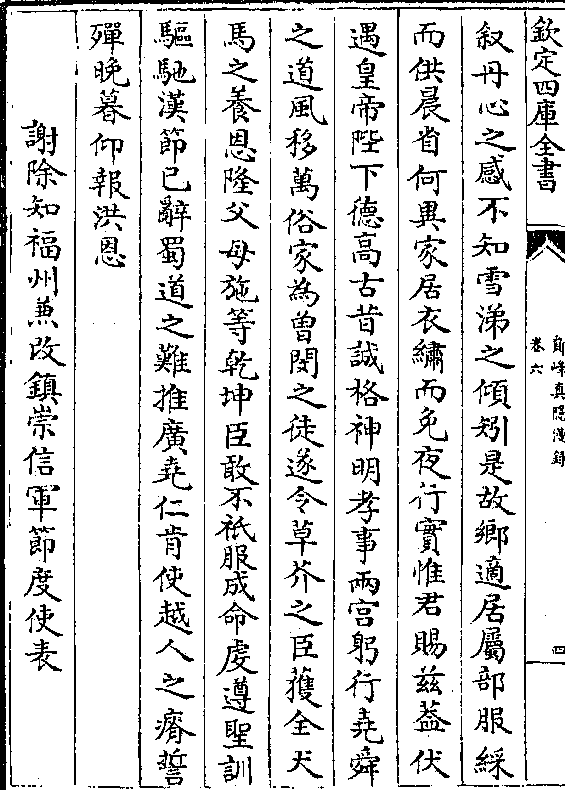 欽定四庫全書
鄮峰真隱漫録
卷六
四
叙丹心之感不知雪涕之傾矧是故鄉適居屬部服綵
而供晨省何異家居衣繡而免夜行實惟君賜兹蓋伏
遇皇帝陛下德高古昔誠格神明孝事兩宫躬行堯舜
之道風移萬俗家為曾閔之徒遂令草芥之臣獲全犬
馬之養恩隆父母施等乾坤臣敢不祇服成命虔遵聖訓
驅馳漢節已辭蜀道之難推廣堯仁肯使越人之瘠誓
殫晚暮仰報洪恩
謝除知福州兼改鎮崇信軍節度使表